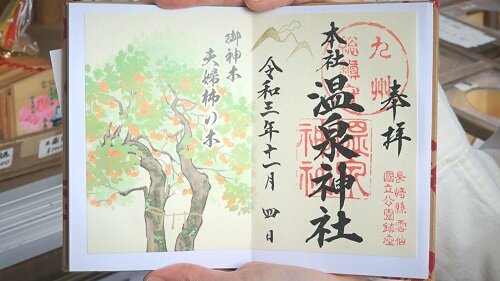 奉拝
九州
総鎮守
本社
温泉神社
温泉
神社
長崎縣雲仙
國立公園鎮座
令和三年十一月四日
御神木
夫婦柿の木